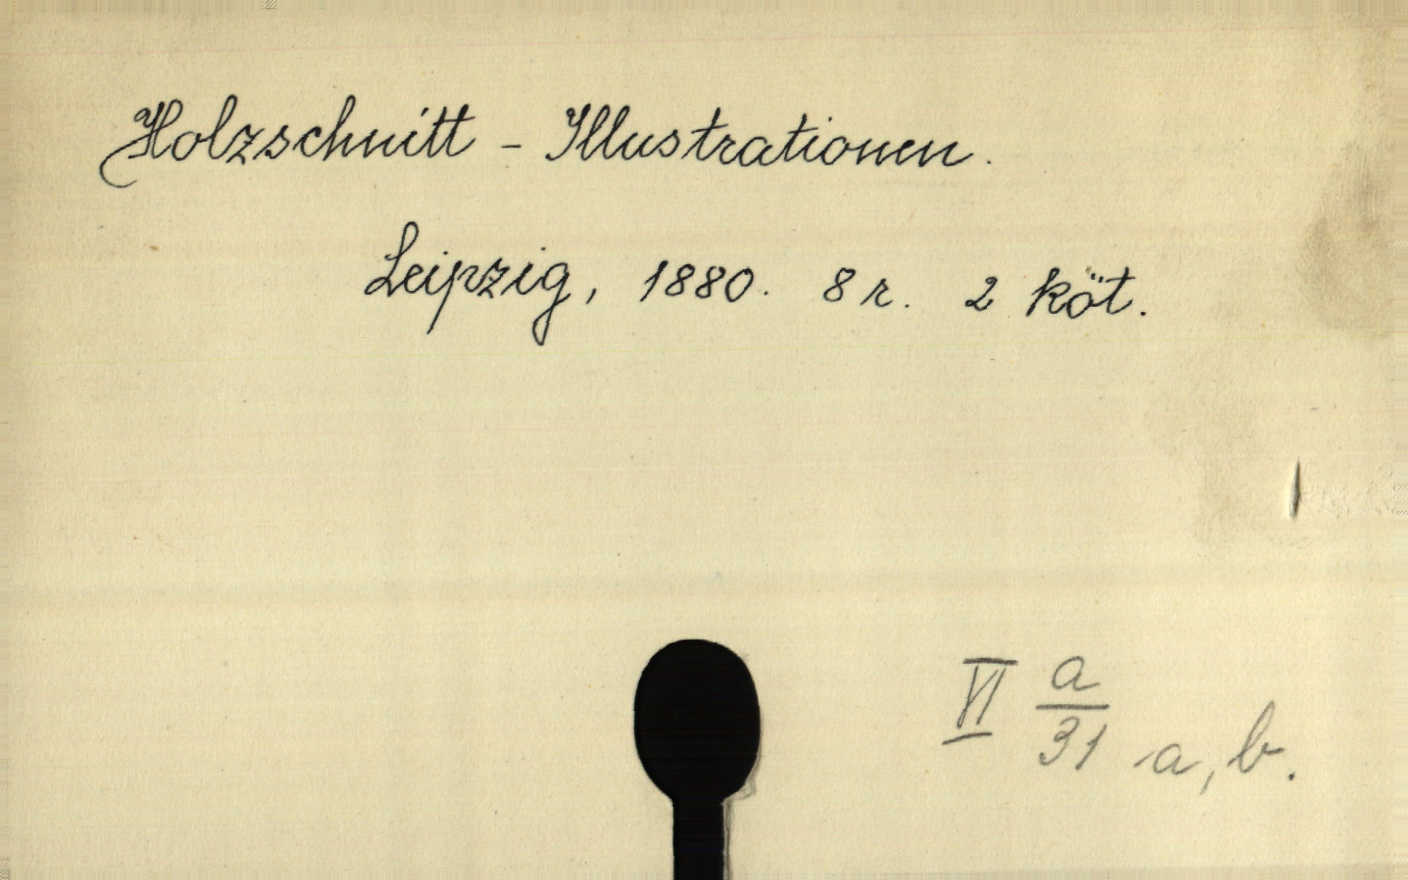 Holzschnitt - Illustrationen.
Leipzig, 1880. 8 r. 2 köt.
VI a/31 a, b.